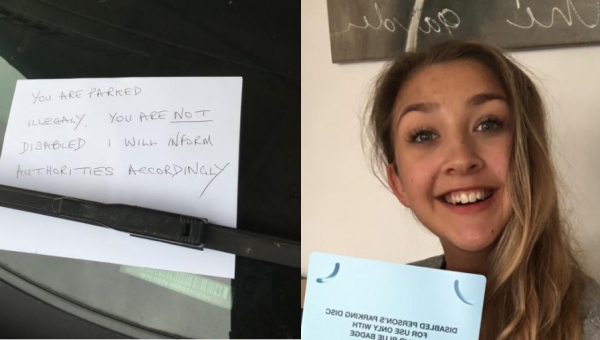 YOU ARE PARKED
ILLEGALY. YOU ARE NOT
DISABLED I WILL INFORM
AUTHORITIES ACCORDINGLY
DISABLED PERSON'S PARKING DISC
FOR USE ONLY WITH
BLUE BADGE